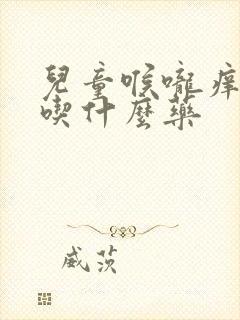 兒童喉嚨痒
喫什麼藥
威茨